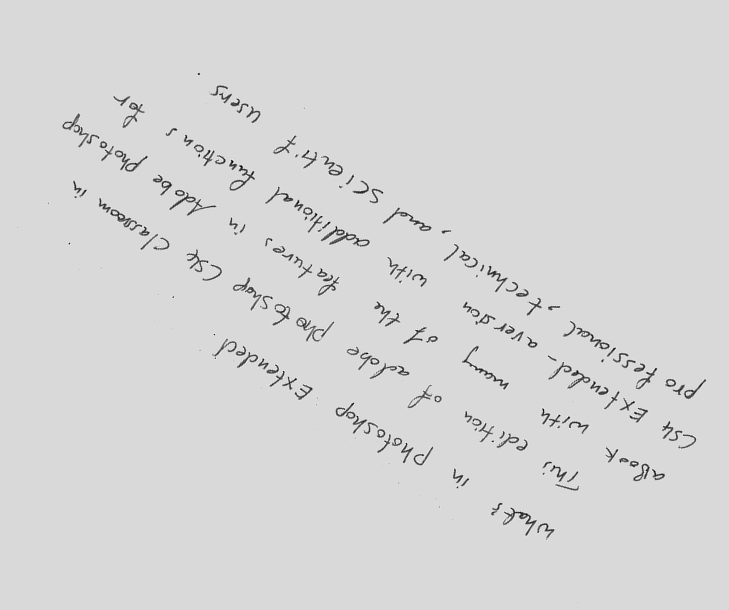 what's in photoshop Extended
This edition of adobe photoshop CS4 Classroom in
aBook with many of the features in Adobe photoshop
CS4 Extended - aversion with additional functions for
professional, technical, and scientif users